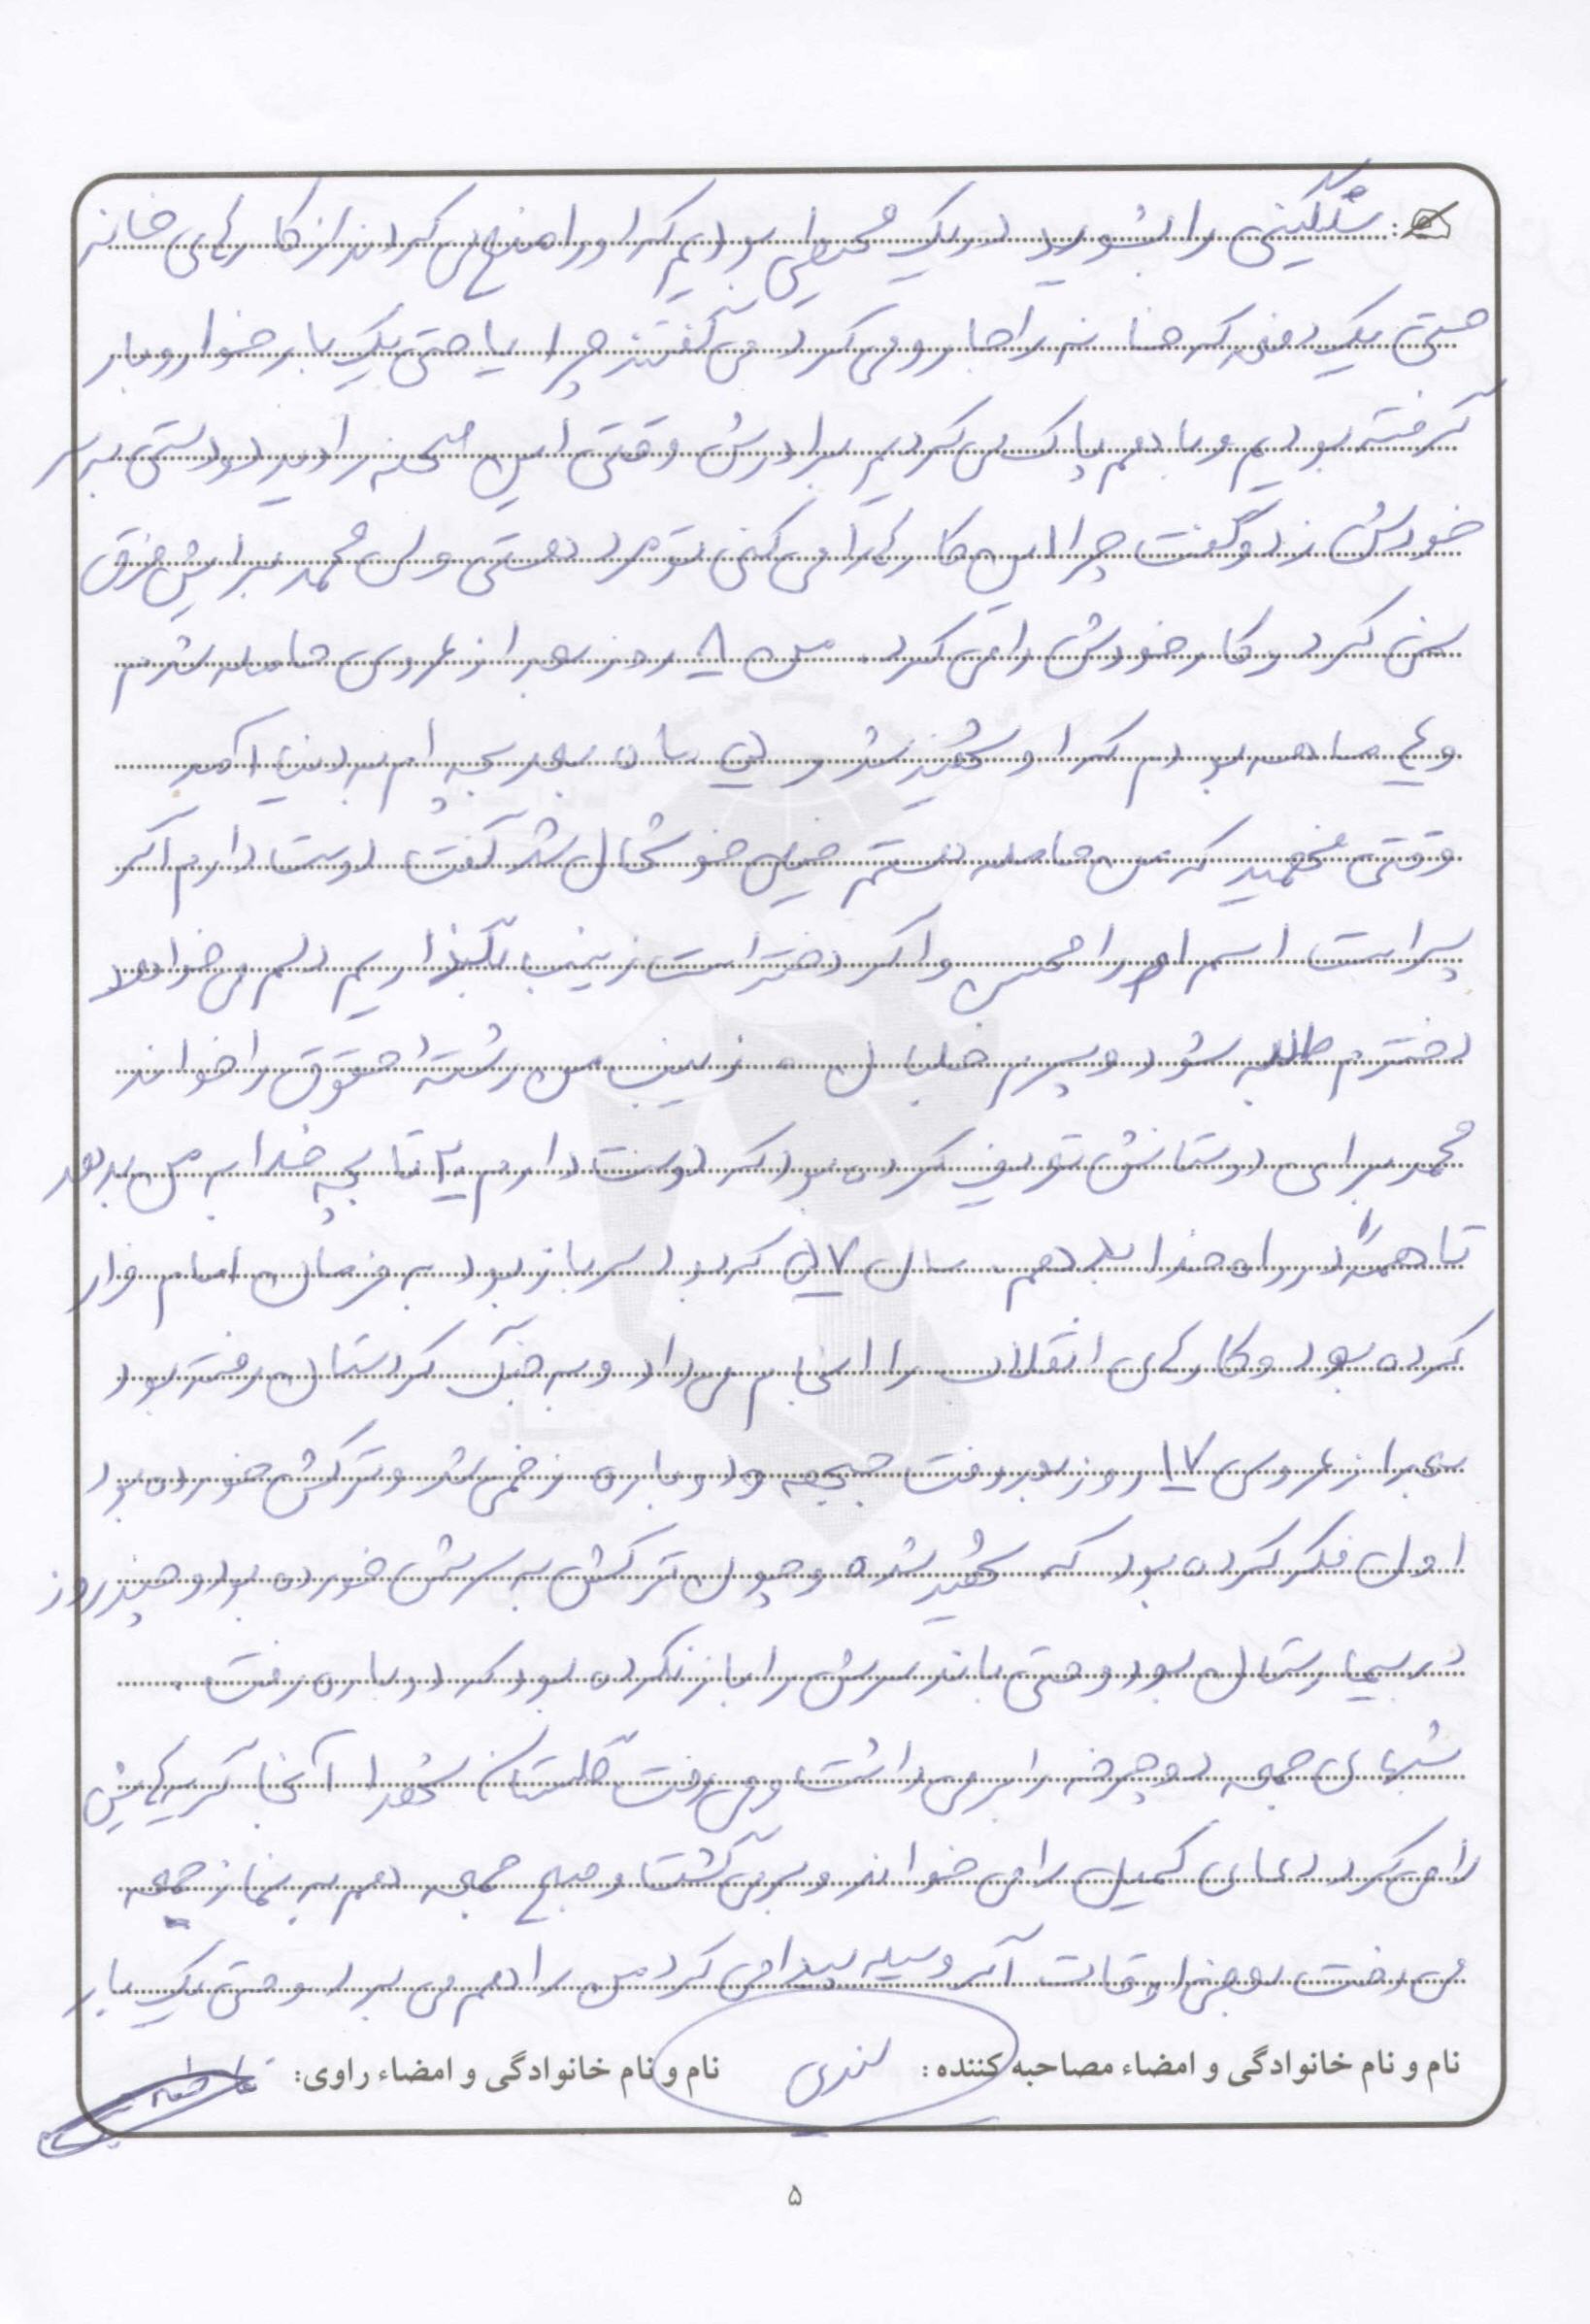 سنگینی را بشورید در یک محیطی بودیم که او را منع می کردند از کارهای خانه
حتی یک دفعه که خانه را جارو می کرد می گفتند چرا یا حتی یک بار خواروبار
گرفته بودیم و با هم پاک می کردیم برادرش وقتی این صحنه را دید دو دستی به سر
خودش زد و گفت چرا این کارها را می کنی تو مرد هستی ولی محمد برایش فرق
نمی کرد و کار خودش را می کرد. من ۸ روز بعد از عروسی حامله شدم
و ۴ ماهه بودم که او شهید شد و ۵ ماه بعد بچه ام به دنیا آمد
وقتی فهمید که من حامله هستم خیلی خوشحال شد گفت دوست دارم اگر
پسر است اسم او را محسن و اگر دختر است زینب بگذاریم دلم می خواهد
دخترم طلبه شود و پسرم خلبان. زینب من رشته حقوق را خواند
محمد برای دوستانش تعریف کرده بود که دوست دارم ۲۰ تا بچه خدا به من بدهد
تا همه را در راه خدا بدهم. سال ۵۷ که بود سرباز بود به فرمان امام فرار
کرده بود و کارهای انقلاب را انجام می داد و به جنگ کردستان رفته بود
بعد از عروسی ۱۷ روز بعد رفت جبهه و دوباره زخمی شد و ترکش خورده بود
اول فکر کرده بود که شهید شده و چون ترکش به سرش خورده بود و چند روز
در بیمارستان بود و حتی باند سرش را باز نکرده بود که دوباره رفت.
شبهای جمعه دوچرخه را برمی داشت و می رفت گلستان شهدا آنجا گریه هایش
را می کرد دعای کمیل را می خواند و برمی گشت و صبح جمعه هم به نماز جمعه
می رفت بعضی اوقات اگر وسیله پیدا می کرد من را هم می برد و حتی یک بار
نام و نام خانوادگی و امضاء مصاحبه کننده: نام و نام خانوادگی و امضاء راوی:
۵